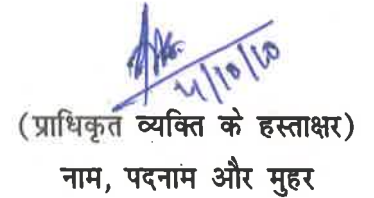 4/10/10
(प्राधिकृत व्यक्ति के हस्ताक्षर)
नाम, पदनाम और मुहर